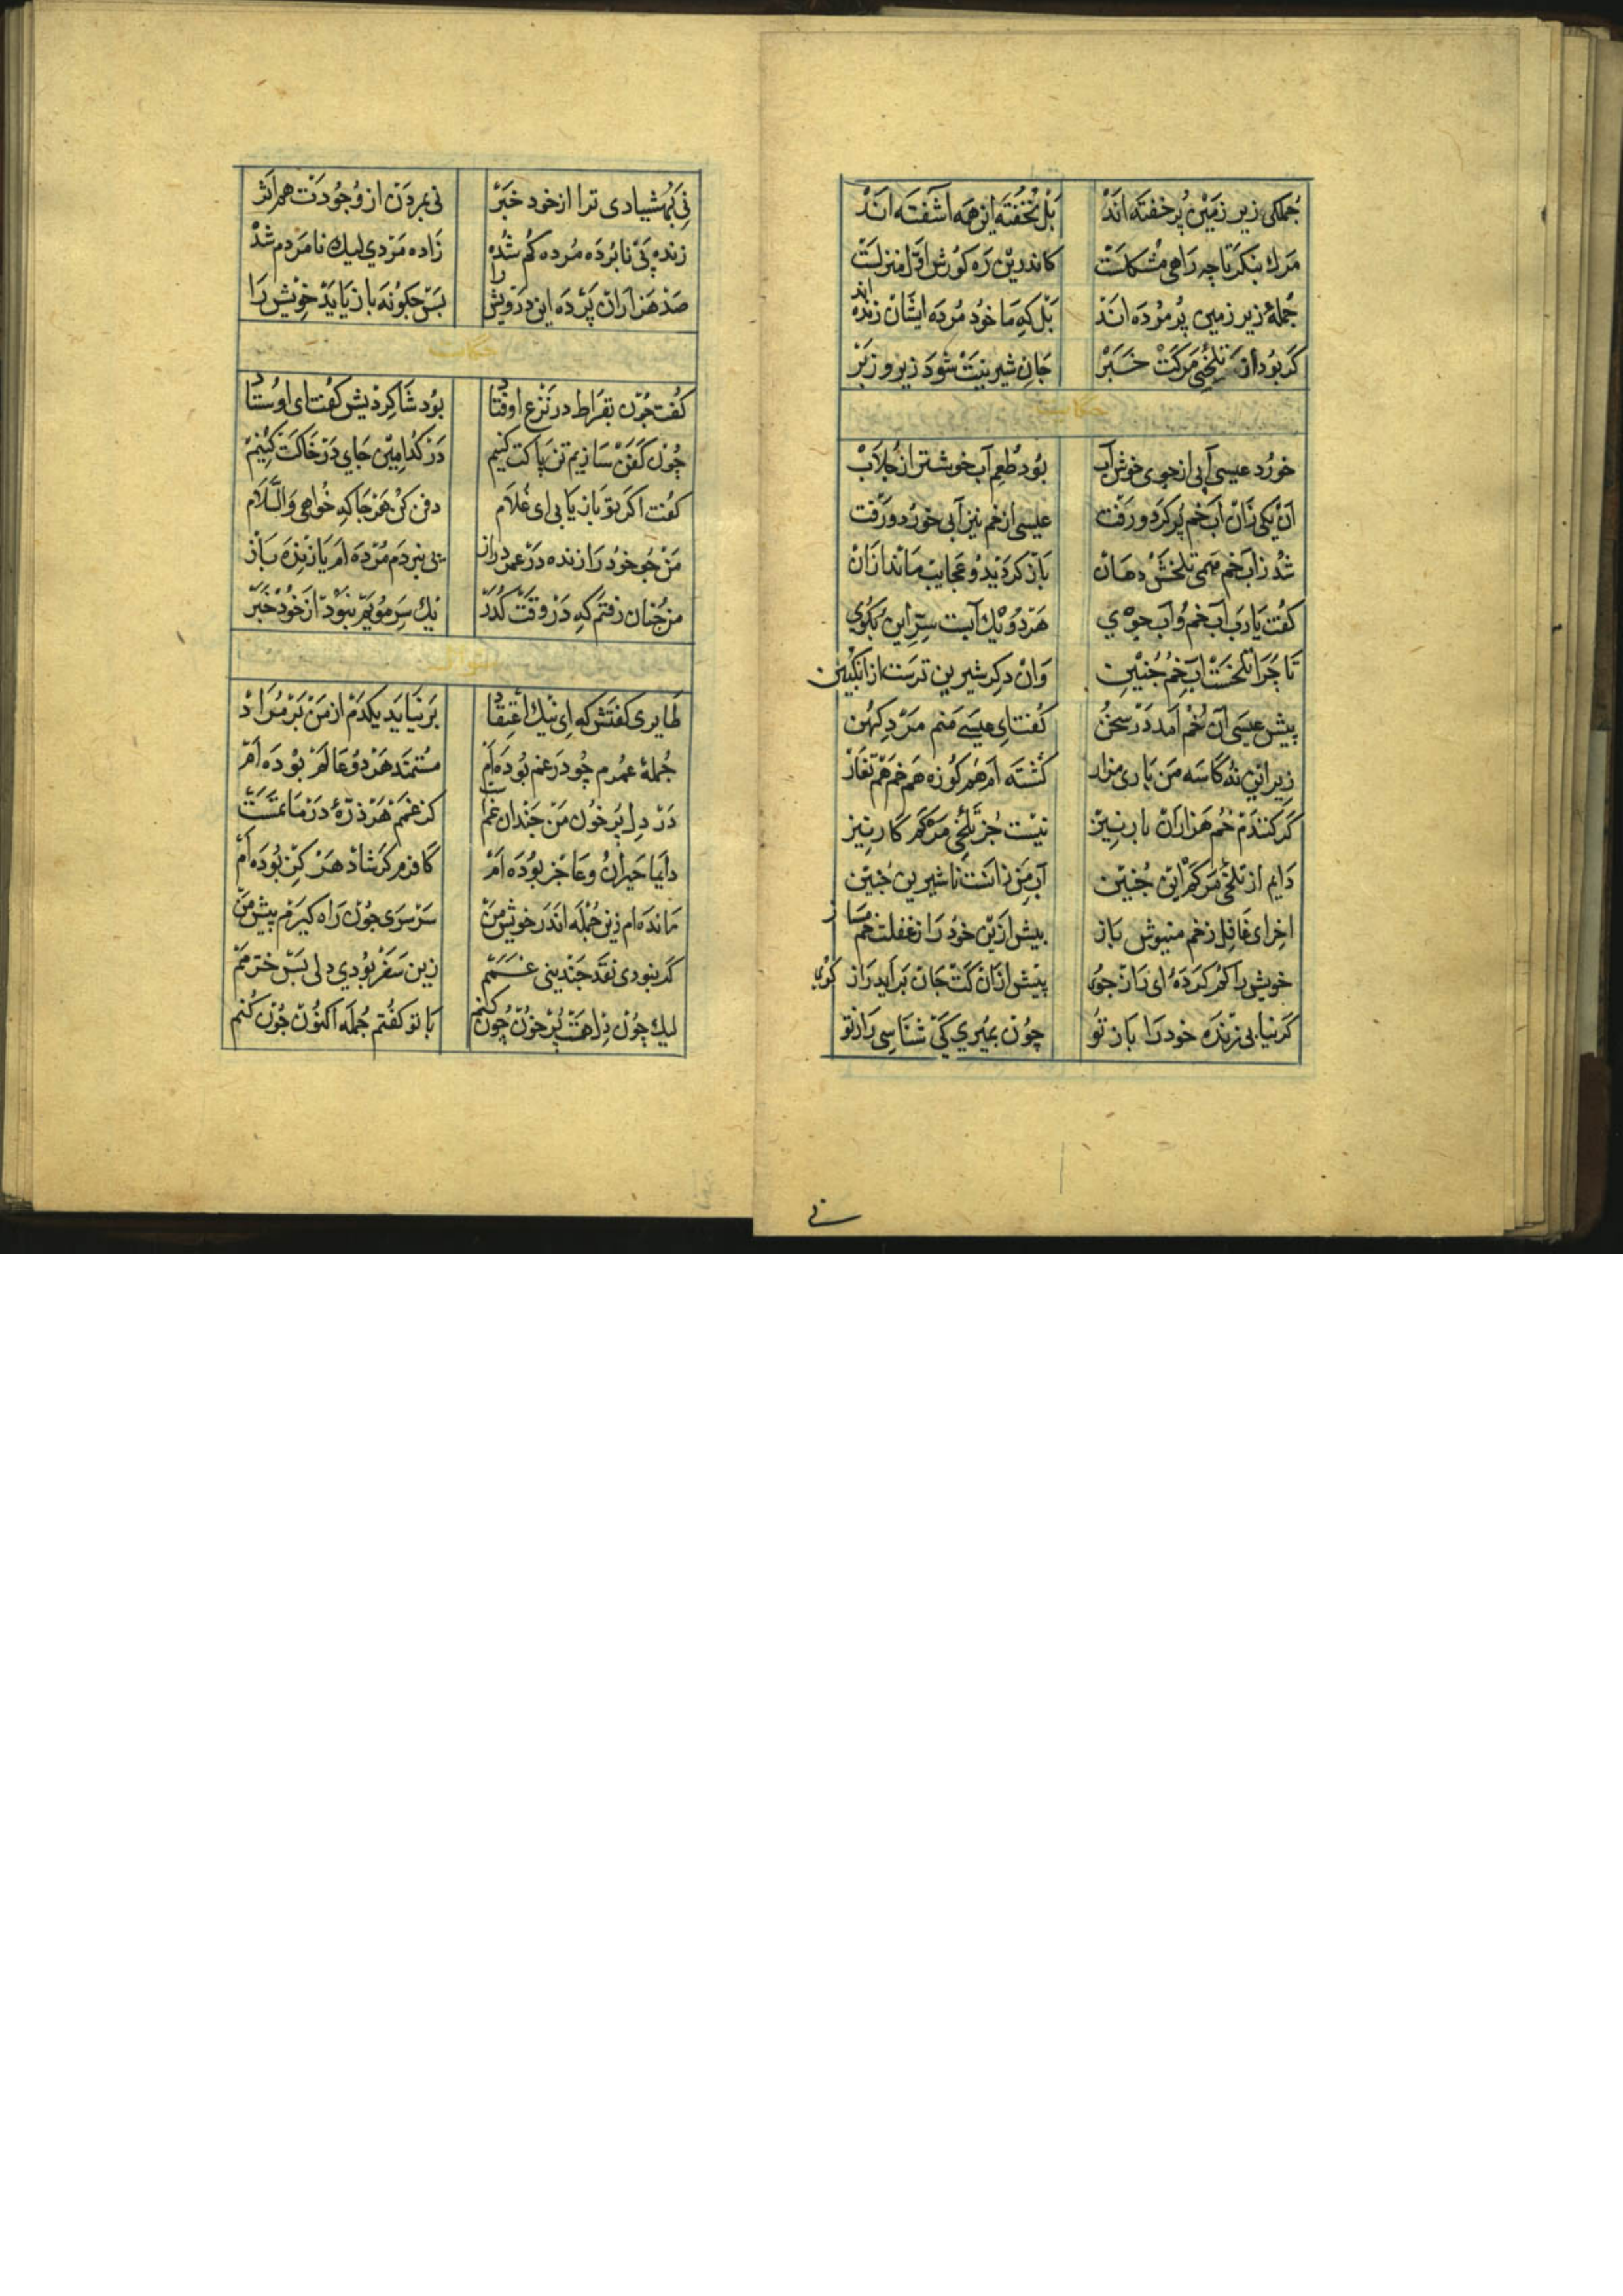 جملكی زیر زمین پر خفته اند بل نخفته این همه آشفته اند
مرك بنكر تا چه راهی مشكلست كاندرین ره كورش اول منزلست
جملۀ زیر زمین پر مرده اند بل كه ما خود مرده ایشان زنده اند
كر بود از تلخی مركت خبر جان شیرینت شود زیر و زبر
حكایت
خورد عیسی آبی از جوی خوش آب بود طعم آب خوشتر از جلاب
آن یكی زان آب خم پر كرد و رفت عیسی از خم نیز آبی خورد و رفت
شد ز آب خم همی تلخش دهان باز كردید و عجایب ماند ازان
كفت یا رب آب خم و آب جوی هر دو یك آبست سر این بكوی
تا چرا تلخست آب خم چنین وان دكر شیرین ترست از انكبین
پیش عیسی آن خم آمد در سخن كفت ای عیسی منم مرد كهن
زیر این نه كاسه من باری هزار كشته ام هم كوزه هم خم هم تغار
كر كنندم خم هزاران بار نیز نیست جز تلخی مركم كار نیز
دایم از تلخی مركم این چنین آب من زانست ناشیرین چنین
اخر ای غافل ز خم منیوش باز بیش ازین خود را ز غفلت خم مساز
خویش را كم كردۀ ای راز جوی پیش ازان كت جان براید راز كوی
كر نیابی زنده خود را باز تو چون بمیری كی شناسی راز تو
نی بهشیاری ترا از خود خبر نی بمردن از وجودت هم اثر
زنده پی نابرده مرده كم شده زاده مردی لیك نامردم شد
صد هزاران پرده این درویش را بس چكونه باز یابد خویش را
حكایت
كفت چون بقراط در نزع اوفتاد بود شاكردیش كفت ای اوستاد
چون كفن سازیم تن پاكت كنیم در كدامین جای در خاكت كنیم
كفت اكر تو باز یابی ای غلام دفن كن هر جا كه خواهی والسلام
من چو خود را زنده در عمر دراز پی نبردم مرده
من چنان رفتم كه در وقت كذر یك سر مویم نبود از خود خبر
سؤال
طایری كفتش كه ای نیك اعتقاد بر نیاید یكدم از من بر مراد
جملۀ عمرم چو در غم بوده ام مستمند هر دو عالم بوده ام
در دل پر خون من چندان غمست كز غمم هر ذرۀ در ماتمست
دایما حیران و عاجز بوده ام كافرم كر شاد هركز بوده ام
مانده ام زین جمله اندر خویش من سرسری چون راه كیرم پیش من
كر نبودی نقد چندینی غمم زین سفر بودی دلی بس خرمم
لیك چون دل هست پر خون چون كنم با تو كفتم جمله اكنون چون كنم
نی